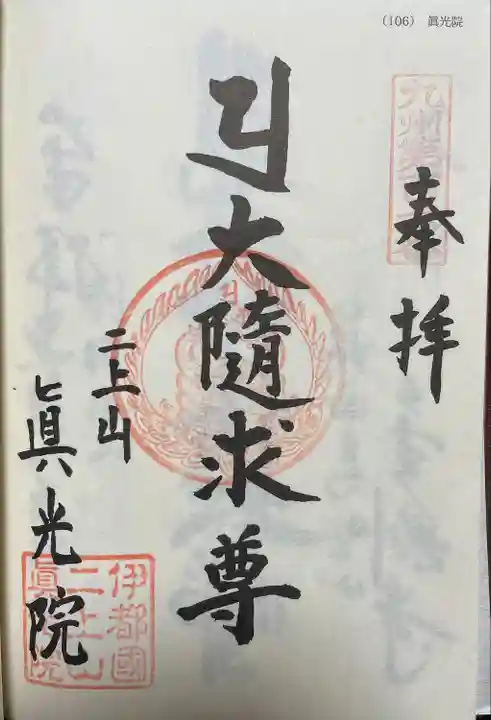 (106) 眞光院
奉拝
大隨求尊
二上山
眞光院
伊都國
二上山
眞光院